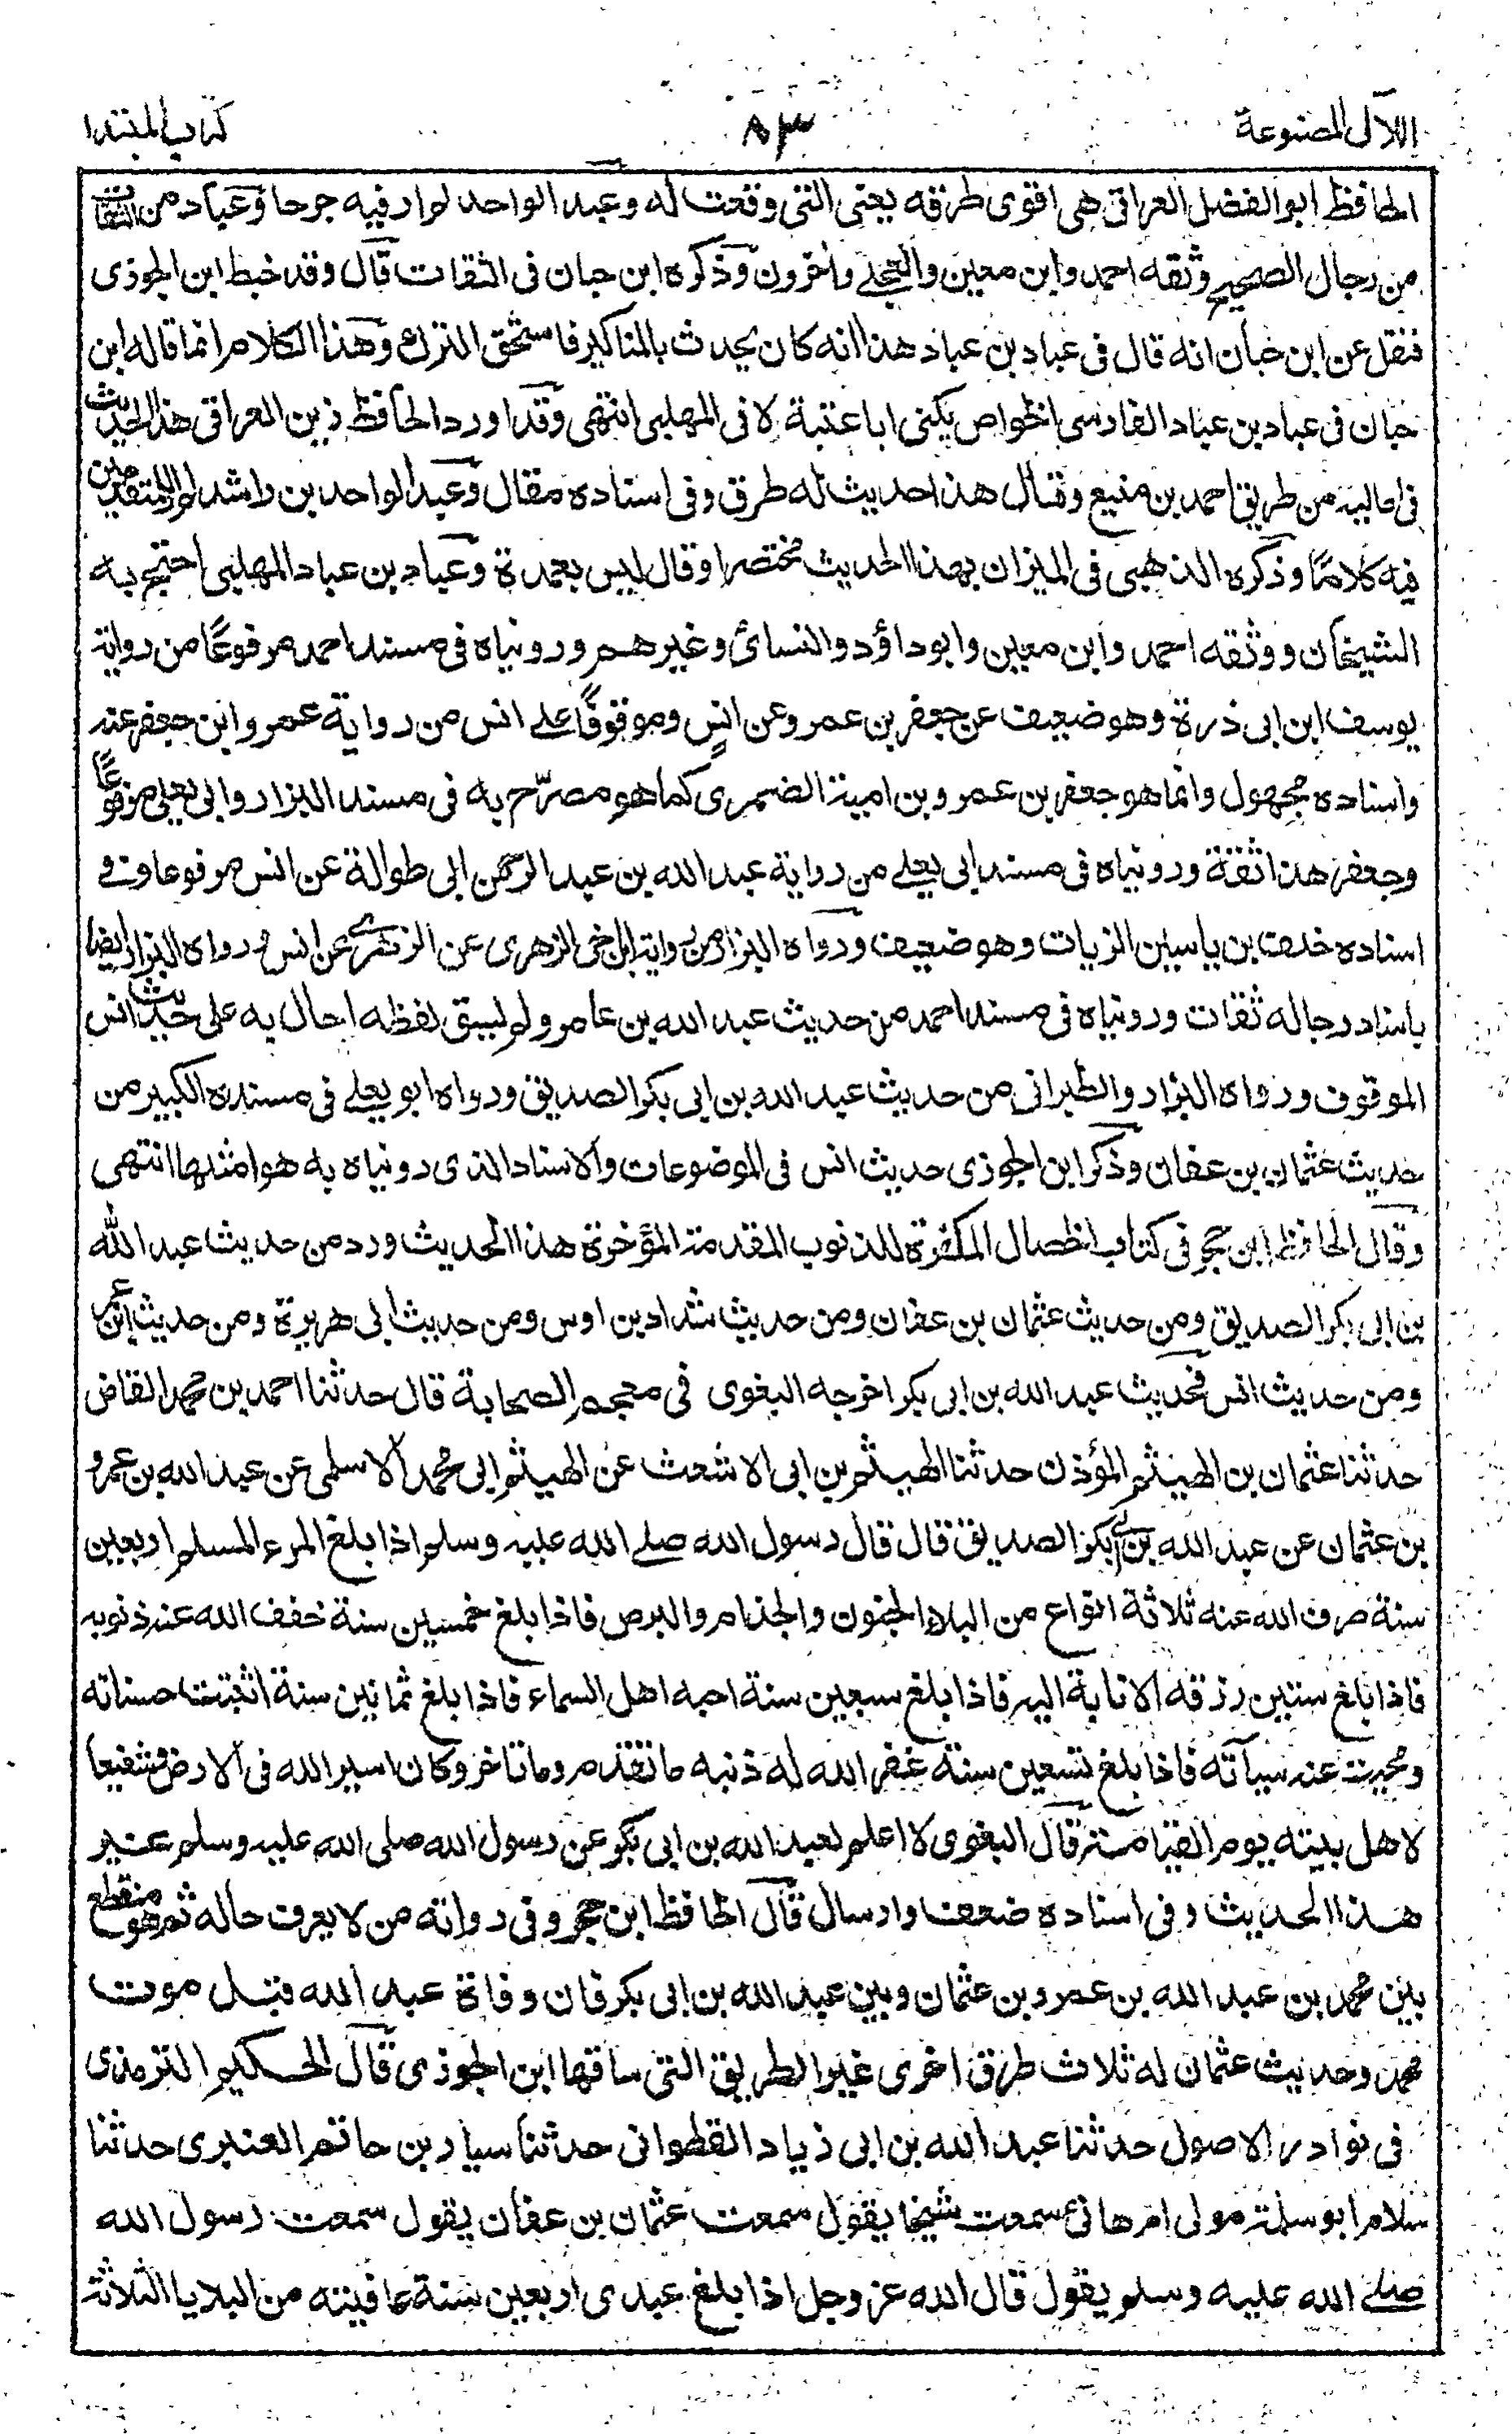 اللآلى المصنوعة
٨٣
كتاب المبتدا
الحافظ ابو الفضل العراقى هى اقوى طرقه يعنى التى وقعت له وعبد الواحد لم ار فيه جرحا وعباد من الثقات
من رجال الصحيح وثقه احمد وابن معين والعجلے واخرون وذكره ابن حبان فى الثقات قال وقد خبط ابن الجوزى
فنقل عن ابن حبان انه قال فى عباد بن عباد هذا انه كان يحدث بالمناكير فاستحق الترك وهذا الكلام انما قاله ابن
حبان فى عباد بن عباد الفارسى الخواص يكنى ابا عتبة لا فى المهلبى انتهى وقد اورد الحافظ زين العراقى هذا الحديث
فى اماليه من طريق احمد بن منيع وقال هذا حديث له طرق وفى اسناده مقال وعبد الواحد بن راشد لم ار للمتقدمين
فيه كلامًا وذكره الذهبى فى الميزان بهذا الحديث مختصرا وقال ليس بعمدة وعباد بن عباد المهلبى احتج به
الشيخان ووثقه احمد وابن معين وابو داؤد والنسائ وغيرهم وروئياه فى مسند احمد مرفوعًا من رواية
يوسف ابن ابى ذرة وهو ضعيف عن جعفر بن عمرو عن انس وموقوفًا علے انس من رواية عمرو ابن جعفر عنه
واسناده مجهول وانما هو جعفر بن عمرو بن امية الضمرى كما هو مصرّح به فى مسند البزار وابى يعلى مرفوعًا
وجعفر هذا ثقة وروئياه فى مسند ابى يعلے من رواية عبد الله بن عبد الرحمن ابى طوالة عن انس مرفوعا وفے
اسناده خلف بن ياسين الزيات وهو ضعيف ورواه البزار من رواية ابن اخى الزهرى عن الزهرے عن انس ورواه البزار ايضا
باسناد رجاله ثقات وروئياه فى مسند احمد من حديث عبد الله بن عامر ولم يسبق لفظه احال به على حديث انس
الموقوف ورواه البزار والطبرانى من حديث عبد الله بن ابى بكر الصديق ورواه ابو يعلے فى مسنده الكبير من
حديث عثمان بن عفان وذكر ابن الجوزى حديث انس فى الموضوعات والاسناد الذى روئياه به هو امثلها انتهى
وقال الحافظ ابن حجر فى كتاب الخصال المكفرة للذنوب المقدمة المؤخرة هذا الحديث ورد من حديث عبد الله
بن ابى بكر الصديق ومن حديث عثمان بن عفان ومن حديث شداد بن اوس ومن حديث ابى هريرة ومن حديث ابن عمر
ومن حديث انس فحديث عبد الله بن ابى بكر اخرجه البغوى فى معجم الصحابة قال حدثنا احمد بن محمد القاض
حدثنا عثمان بن الهيثم المؤذن حدثنا الهيثم بن ابى الاشعث عن الهيثم ابى محمد الاسلمى عن عبد الله بن عمرو
بن عثمان عن عبد الله بن ابى بكر الصديق قال قال رسول الله صلے الله عليه وسلم اذا بلغ المرء المسلم اربعين
سنة صرف الله عنه ثلاثة انواع من البلاء الجنون والجذام والبرص فاذا بلغ خمسين سنة خفف الله عنه ذنوبه
فاذا بلغ ستين رزقه الانابة اليه فاذا بلغ سبعين سنة احبه اهل السماء فاذا بلغ ثمانين سنة اثبتت حسناته
ومحيت عنه سيآته فاذا بلغ تسعين سنة غفر الله له ذنبه ما تقدم وما تاخر وكان اسير الله فى الارض وشفيعا
لاهل بيته يوم القيامة قال البغوى لا اعلم لعبد الله بن ابى بكر عن رسول الله صلى الله عليه وسلم غير
هذا الحديث وفى اسناده ضعف وارسال قال الحافظ ابن حجر وفى رواته من لا يعرف حاله ثم هو منقطع
بين محمد بن عبد الله بن عمرو بن عثمان وبين عبد الله بن ابى بكر فان وفاة عبد الله قبل موت
محمد وحديث عثمان له ثلاث طرق اخرى غير الطريق التى ساقها ابن الجوزى قال الحكيم الترمذى
فى نوادر الاصول حدثنا عبد الله بن ابى زياد القطوانى حدثنا سيار بن حاتم العنبرى حدثنا
سلام ابو سلمة مولى ام هانئ سمعت شيخا يقول سمعت عثمان بن عفان يقول سمعت رسول الله
صلے الله عليه وسلم يقول قال الله عز وجل اذا بلغ عبدى اربعين سنة عافيته من البلايا الثلاثة